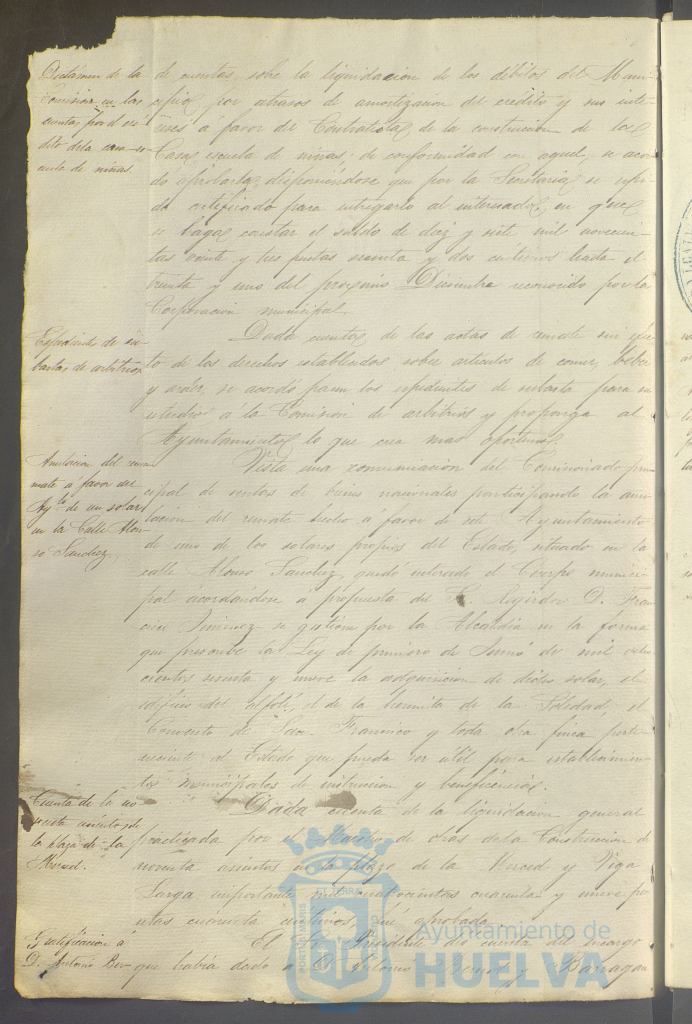 Dictamen de la
Comision en las
cuentas por el cré-
dito de la casa es-
cuela de niñas.
de cuentas, sobre la liquidacion de los débitos del Muni-
cipio, por atrasos de amortizacion del crédito y sus inte-
reses á favor del Contratista de la construccion de la
Casa escuela de niñas; de conformidad con aquel, se acor-
dó aprobarla, disponiéndose que por la Secretaria se espi-
da certificado para entregarlo al interesado, en que
se haga constar el saldo de diez y siete mil novecien-
tas veinte y tres pesetas sesenta y dos centimos hasta el
treinta y uno del proximo Diciembre reconocido por la
Corporacion municipal.
Espediente de su-
bastas de arbitrios
Dada cuenta de las actas de remate sin efec-
to de los derechos establecidos sobre articulos de comer, beber
y arder, se acordó pasen los espedientes de subasta para su
estudio á la Comision de arbitrios y proponga al
Ayuntamiento lo que crea mas oportuno.
Anulacion del rema-
mate á favor del
Ayto. de un solar
en la Calle Alon-
so Sanchez.
Vista una comunicacion del Comisionado prin-
cipal de ventas de bienes nacionales participando la anu-
lacion del remate hecho á favor de este Ayuntamiento
de uno de los solares propios del Estado, situado en la
calle Alonso Sanchez, quedó enterado el Cuerpo munici-
pal acordándose á propuesta del Sr. Regidor D. Fran-
cisco Jimenez se gestione por la Alcaldia en la forma
que prescribe la Ley de primero de Junio de mil ocho-
cientos sesenta y nueve la adquisicion de dicho solar, el
edificio del alfolí, el de la hermita de la Soledad, el
Convento de San Francisco y toda otra finca perte-
neciente al Estado que pueda ser útil para establecimien-
tos municipales de instruccion y beneficencia.
Cuenta de la no-
venta asientos de
la plaza de la
Merced.
Dada cuenta de la liquidacion general
practicada por el Maestro de obras de la Construccion de
noventa asientos en la plaza de la Merced y Viga
Larga importante mil cuatrocientas cuarenta y nueve pe-
setas cincuenta centimos, fué aprobada.
Gratificacion á
D. Antonio Ber-
El Sr. Presidente dió cuenta del encargo
que habia dado á D. Antonio y Barragan
Ayuntamiento de
HUELVA
PORTUS MARIS